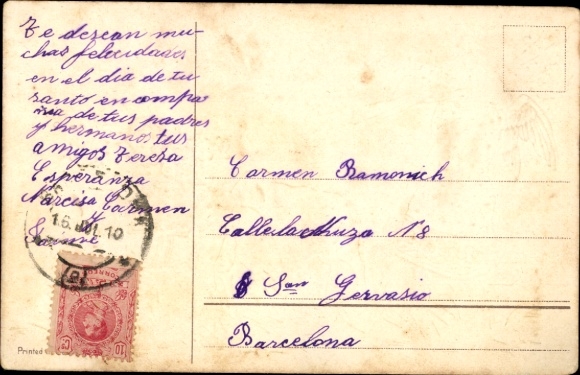 Te desean mu-
chas felecidades
en el dia de tu
santo en compa
ñia de tus padres
y hermanos tus
amigos Tereza
Esperanza
Narcisa Carmen
y
16 JUL 10
Carmen Ramonich
Calle la Nº 8
San Gervasio
Barcelona
10
Printed